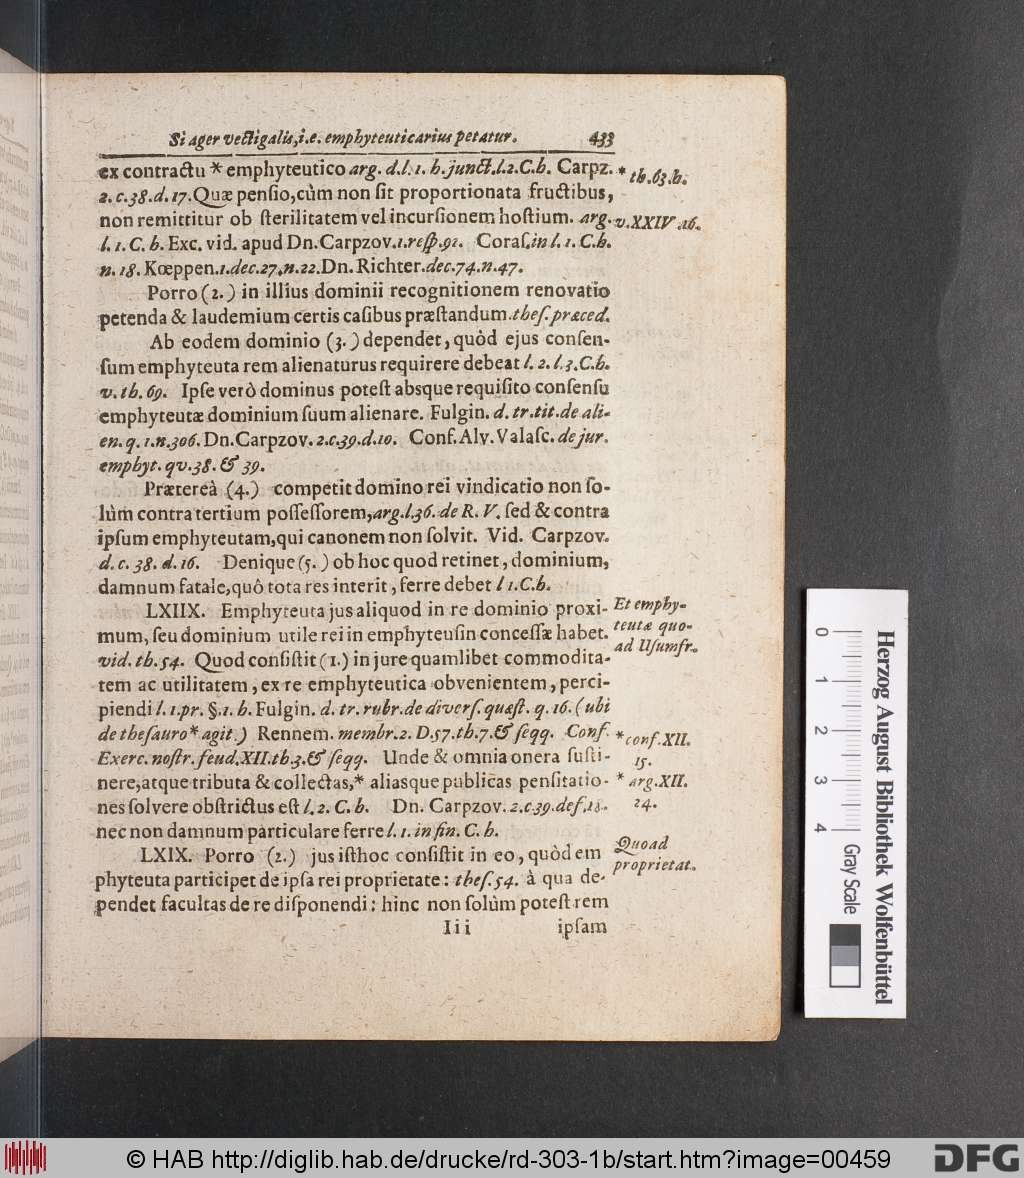 Si ager vectigalis, i.e. emphyteuticarius petatur. 433
ex contractu * emphyteutico arg. d. l. 1. h. junct. l. 2. C. h. Carpz.
* th. 63. h.
2. c. 38. d. 17. Quæ pensio, cùm non sit proportionata fructibus,
non remittitur ob sterilitatem vel incursionem hostium. arg.
v. XXIV 26.
l. 1. C. h. Exc. vid. apud Dn. Carpzov. 1. resp. 91. Coras. in l. 1. C. h.
n. 18. Kœppen. 1. dec. 27. n. 22. Dn. Richter. dec. 74. n. 47.
Porro (2.) in illius dominii recognitionem renovatio
petenda & laudemium certis casibus præstandum. thes. præced.
Ab eodem dominio (3.) dependet, quòd ejus consen-
sum emphyteuta rem alienaturus requirere debeat l. 2. l. 3. C. h.
v. th. 69. Ipse verò dominus potest absque requisito consensu
emphyteutæ dominium suum alienare. Fulgin. d. tr. tit. de ali-
en. q. 1. n. 306. Dn. Carpzov. 2. c. 39. d. 10. Conf. Alv. Valasc. de jur.
emphyt. qv. 38. & 39.
Prætereà (4.) competit domino rei vindicatio non so-
lùm contra tertium possessorem, arg. l. 36. de R. V. sed & contra
ipsum emphyteutam, qui canonem non solvit. Vid. Carpzov.
d. c. 38. d. 16. Denique (5.) ob hoc quod retinet, dominium,
damnum fatale, quô tota res interit, ferre debet l 1. C. h.
LXIIX. Emphyteuta jus aliquod in re dominio proxi-
mum, seu dominium utile rei in emphyteusin concessæ habet.
Et emphy-
teutæ quo-
ad Usumfr.
vid. th. 54. Quod consistit (1.) in jure quamlibet commodita-
tem ac utilitatem, ex re emphyteutica obvenientem, perci-
piendi l. 1. pr. §. 1. h. Fulgin. d. tr. rubr. de divers. quæst. q. 16. (ubi
de thesauro * agit.) Rennem. membr. 2. D. 57. th. 7. & seqq. Conf.
* conf. XII.
15.
Exerc. nostr. feud. XII. th 3. & seqq. Unde & omnia onera susti-
nere, atque tributa & collectas, * aliasque publicas pensitatio-
* arg. XII.
24.
nes solvere obstrictus est l. 2. C. h. Dn. Carpzov. 2. c. 39. def. 18.
nec non damnum particulare ferre l. 1. in fin. C. h.
LXIX. Porro (2.) jus isthoc consistit in eo, quòd em
Quoad
proprietat.
phyteuta participet de ipsa rei proprietate: thes. 54. à qua de-
pendet facultas de re disponendi: hinc non solùm potest rem
Iii ipsam
0
1
2
3
4
Gray Scale
Herzog August Bibliothek Wolfenbüttel
© HAB http://diglib.hab.de/drucke/rd-303-1b/start.htm?image=00459
DFG